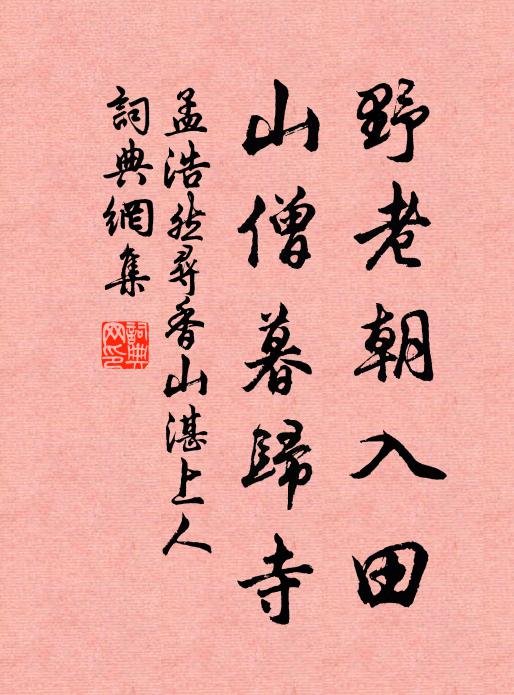 野老朝入田
山僧暮歸寺
孟浩然尋香山湛上人
詞典網集
詞典網印